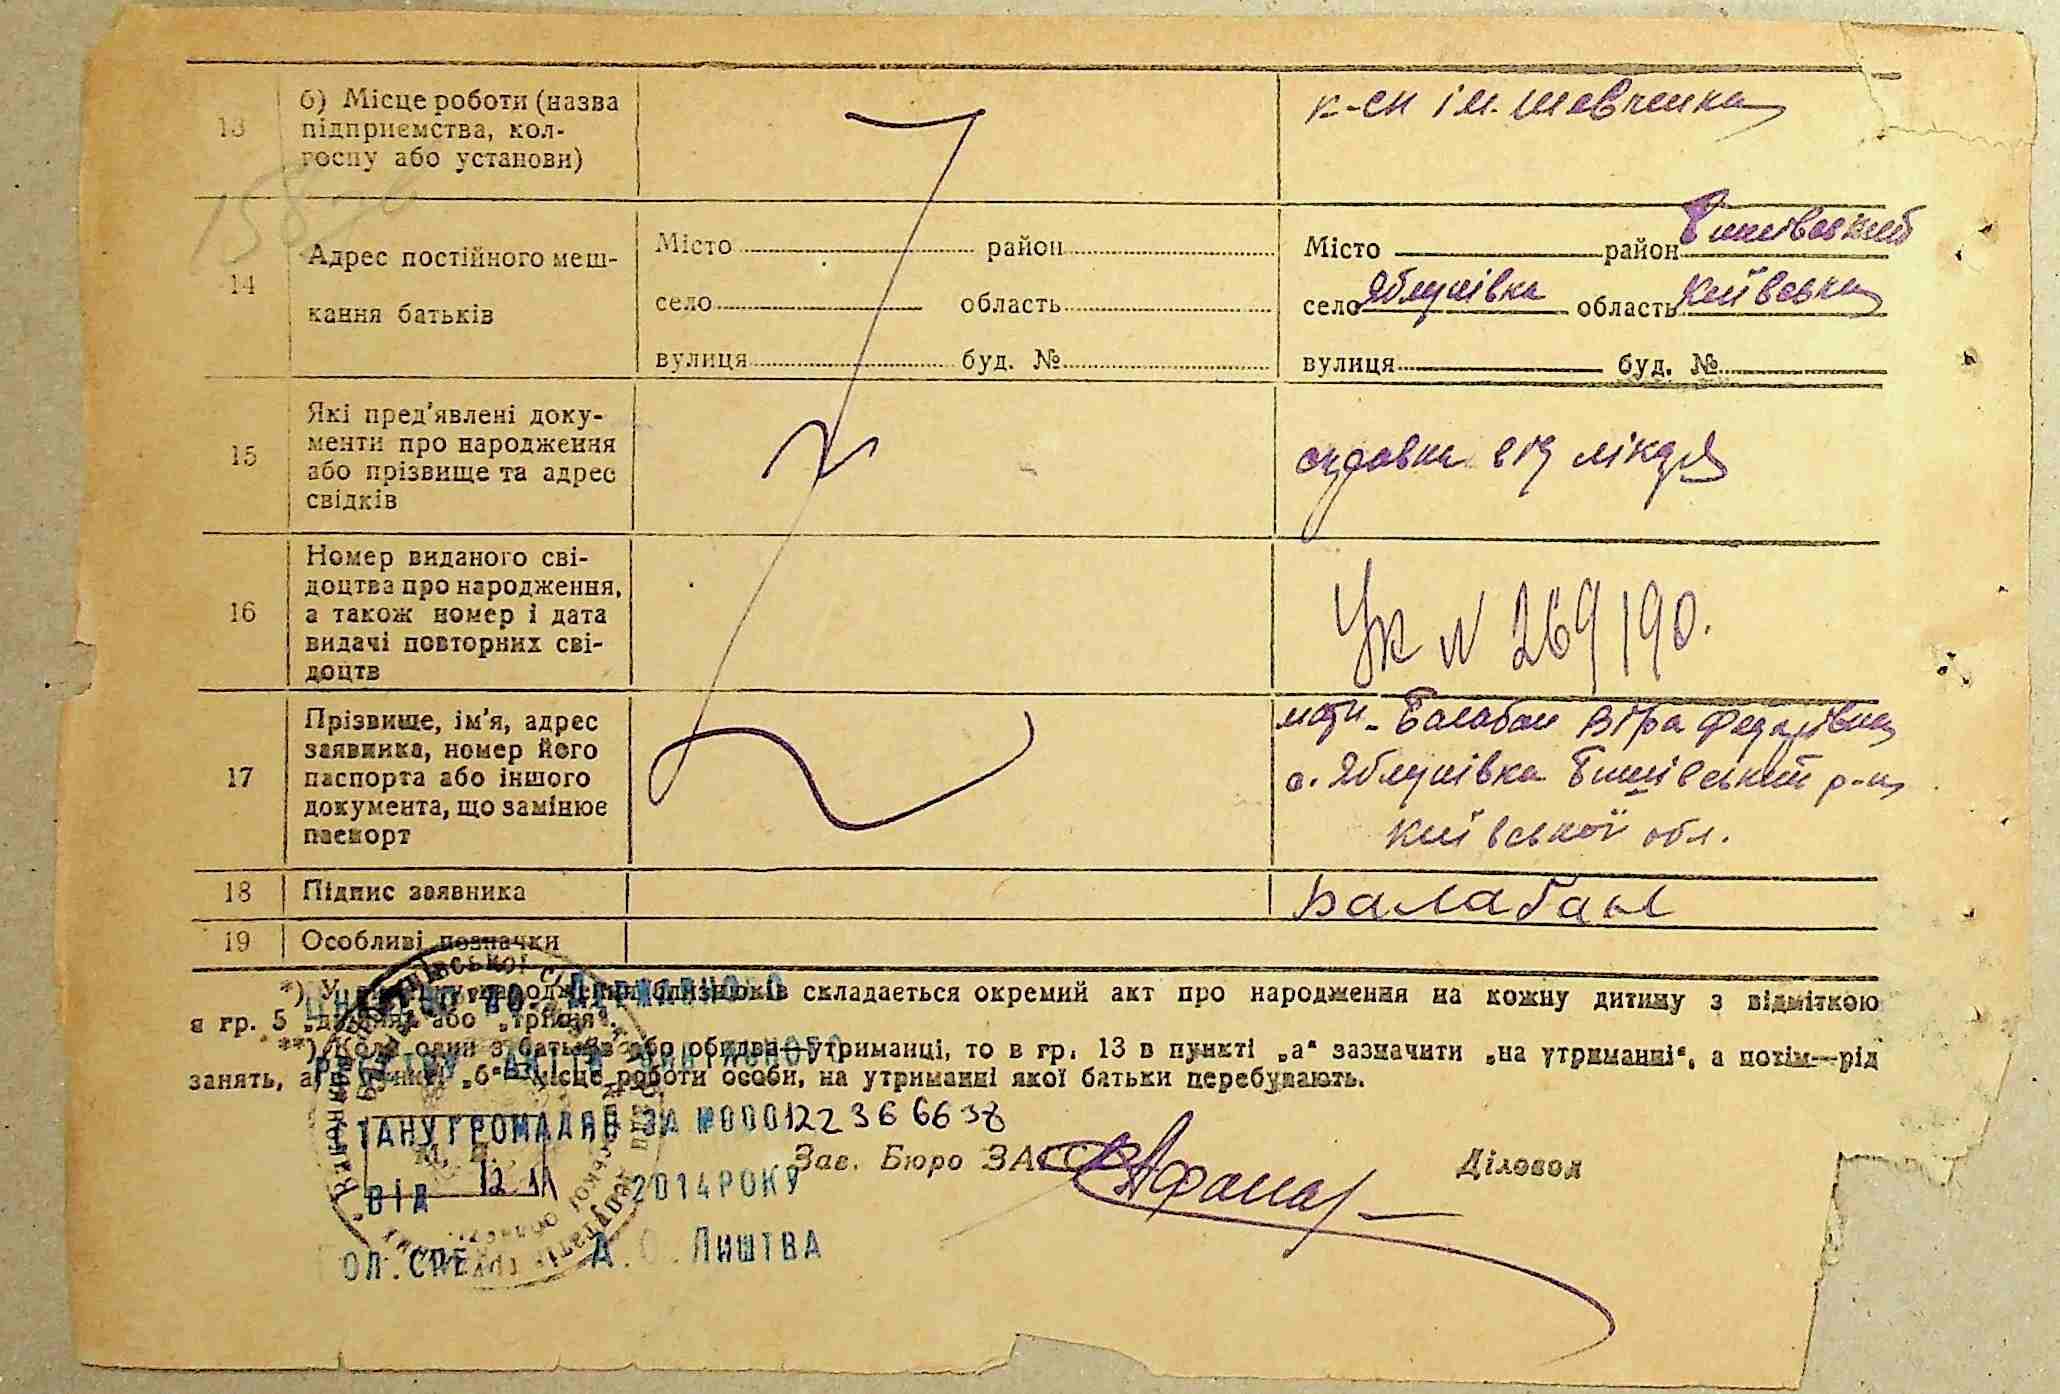 13
б) Місце роботи (назва
підприємства, кол-
госпу або установи)
к-сп ім. Шевченка
14
Адрес постійного меш-
кання батьків
Місто район
село область
вулиця буд. №
Місто район Бишівський
село Яблунівка область Київська
вулиця буд. №
15
Які пред'явлені доку-
менти про народження
або прізвище та адрес
свідків
справка від лікаря
16
Номер виданого сві-
доцтва про народження,
а також номер і дата
видачі повторних сві-
доцтв
УК № 269190.
17
Прізвище, ім'я, адрес
заявника, номер його
паспорта або іншого
документа, що замінює
паспорт
мати - Балабан Віра Федорівна
с. Яблунівка Бишівський р-н
Київської обл.
18
Підпис заявника
Балабан
19
Особливі позначки
*) У складається окремий акт про народження на кожну дитину з відміткою
в гр. 5 „двійня" або „трійня".
**) Коли один з батьків або обидва—утриманці, то в гр. 13 в пункті „а" зазначити „на утриманні", а потім—рід
занять, а в пункті „б" місце роботи особи, на утриманні якої батьки перебувають.
ВНЕСЕНО ДО ДЕРЖАВНОГО
РЕЄСТРУ АКТІВ ЦИВІЛЬНОГО
СТАНУ ГРОМАДЯН ЗА №00012236 6638
М. П.
Зав. Бюро ЗАГС
Діловод
ВІД 12.11 2014 РОКУ
ГОЛ. СПЕЦ. А. О. ЛИШТВА